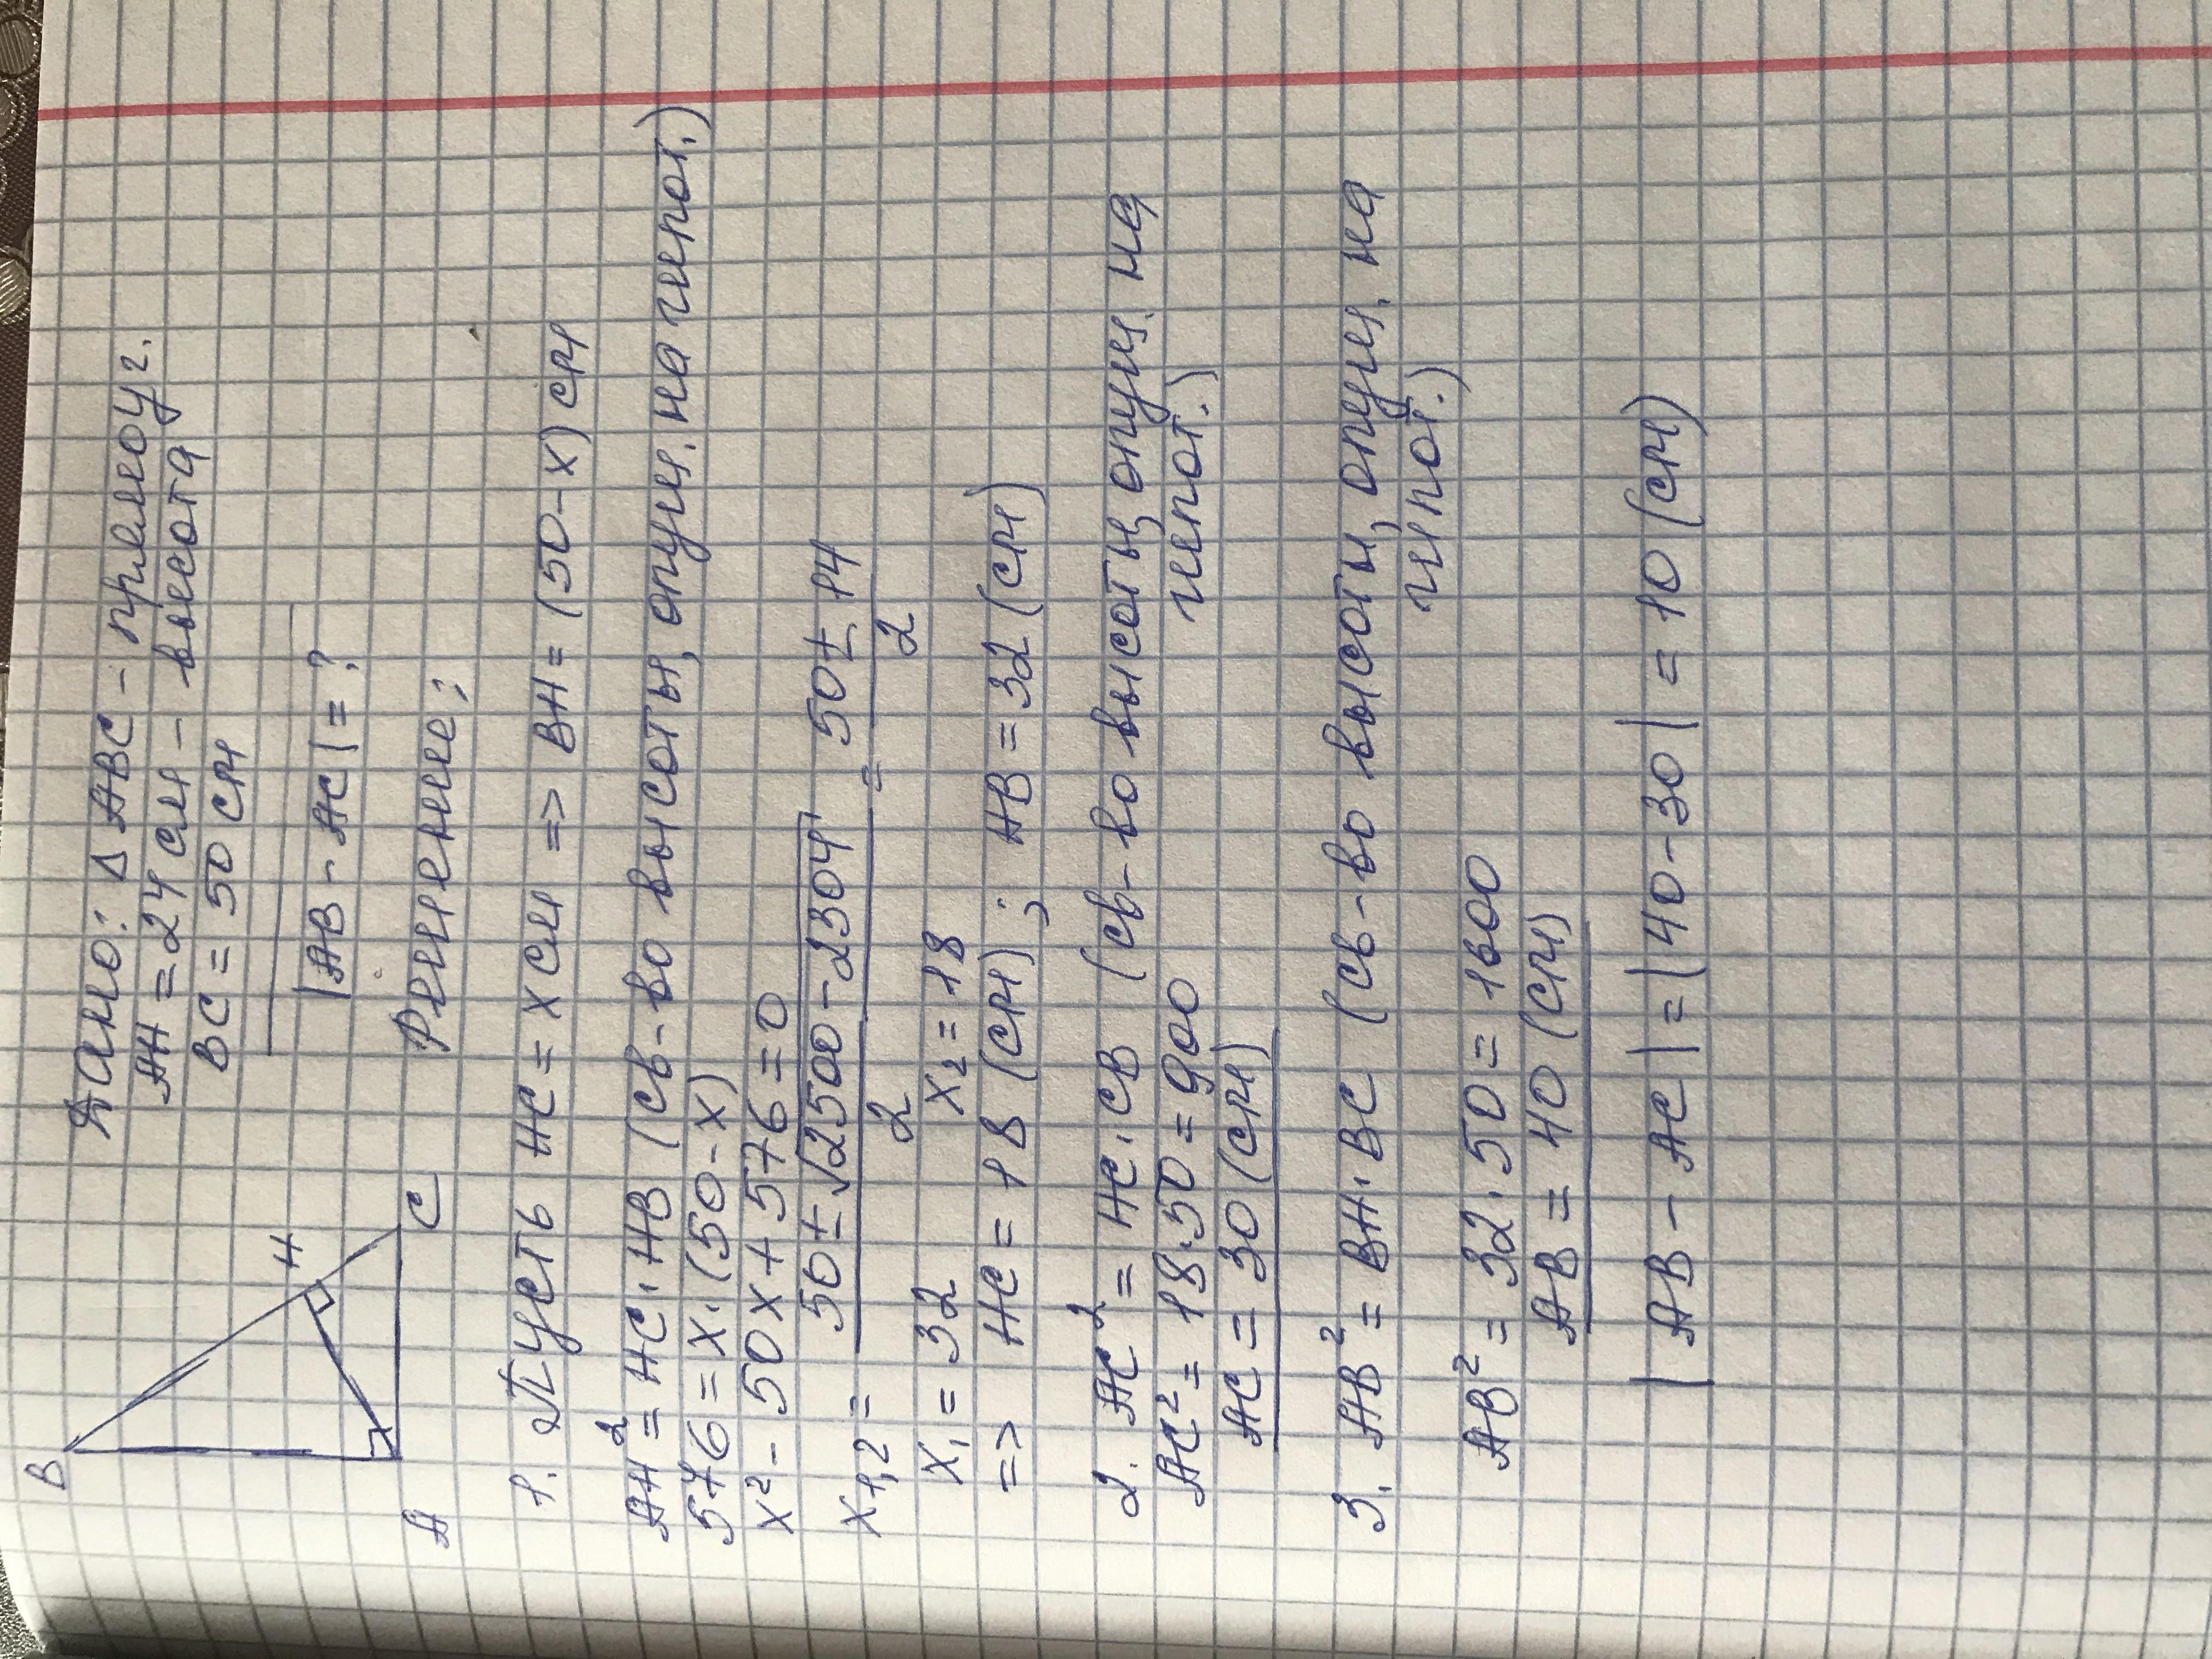 B
H
A
C
Дано: Δ ABC - прямоуг.
AH = 24 см - высота
BC = 50 см
|AB - AC| = ?
Решение:
1. Пусть HC = x см => BH = (50-x) см
AH² = HC · HB (св-во высоты, опущ. на гипот.)
576 = x · (50-x)
x² - 50x + 576 = 0
x1,2 = (50 ± √(2500-2304))/2 = (50 ± 14)/2
x₁ = 32 x₂ = 18
=> HC = 18 (см) ; HB = 32 (см)
2. AC² = HC · CB (св-во высоты, опущ. на
гипот.)
AC² = 18 · 50 = 900
AC = 30 (см)
3. AB² = BH · BC (св-во высоты, опущ. на
гипот.)
AB² = 32 · 50 = 1600
AB = 40 (см)
|AB - AC| = |40-30| = 10 (см)